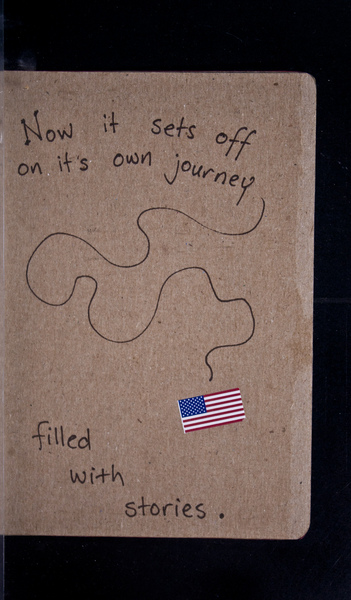 Now it sets off
on it's own journey
filled
with
stories.